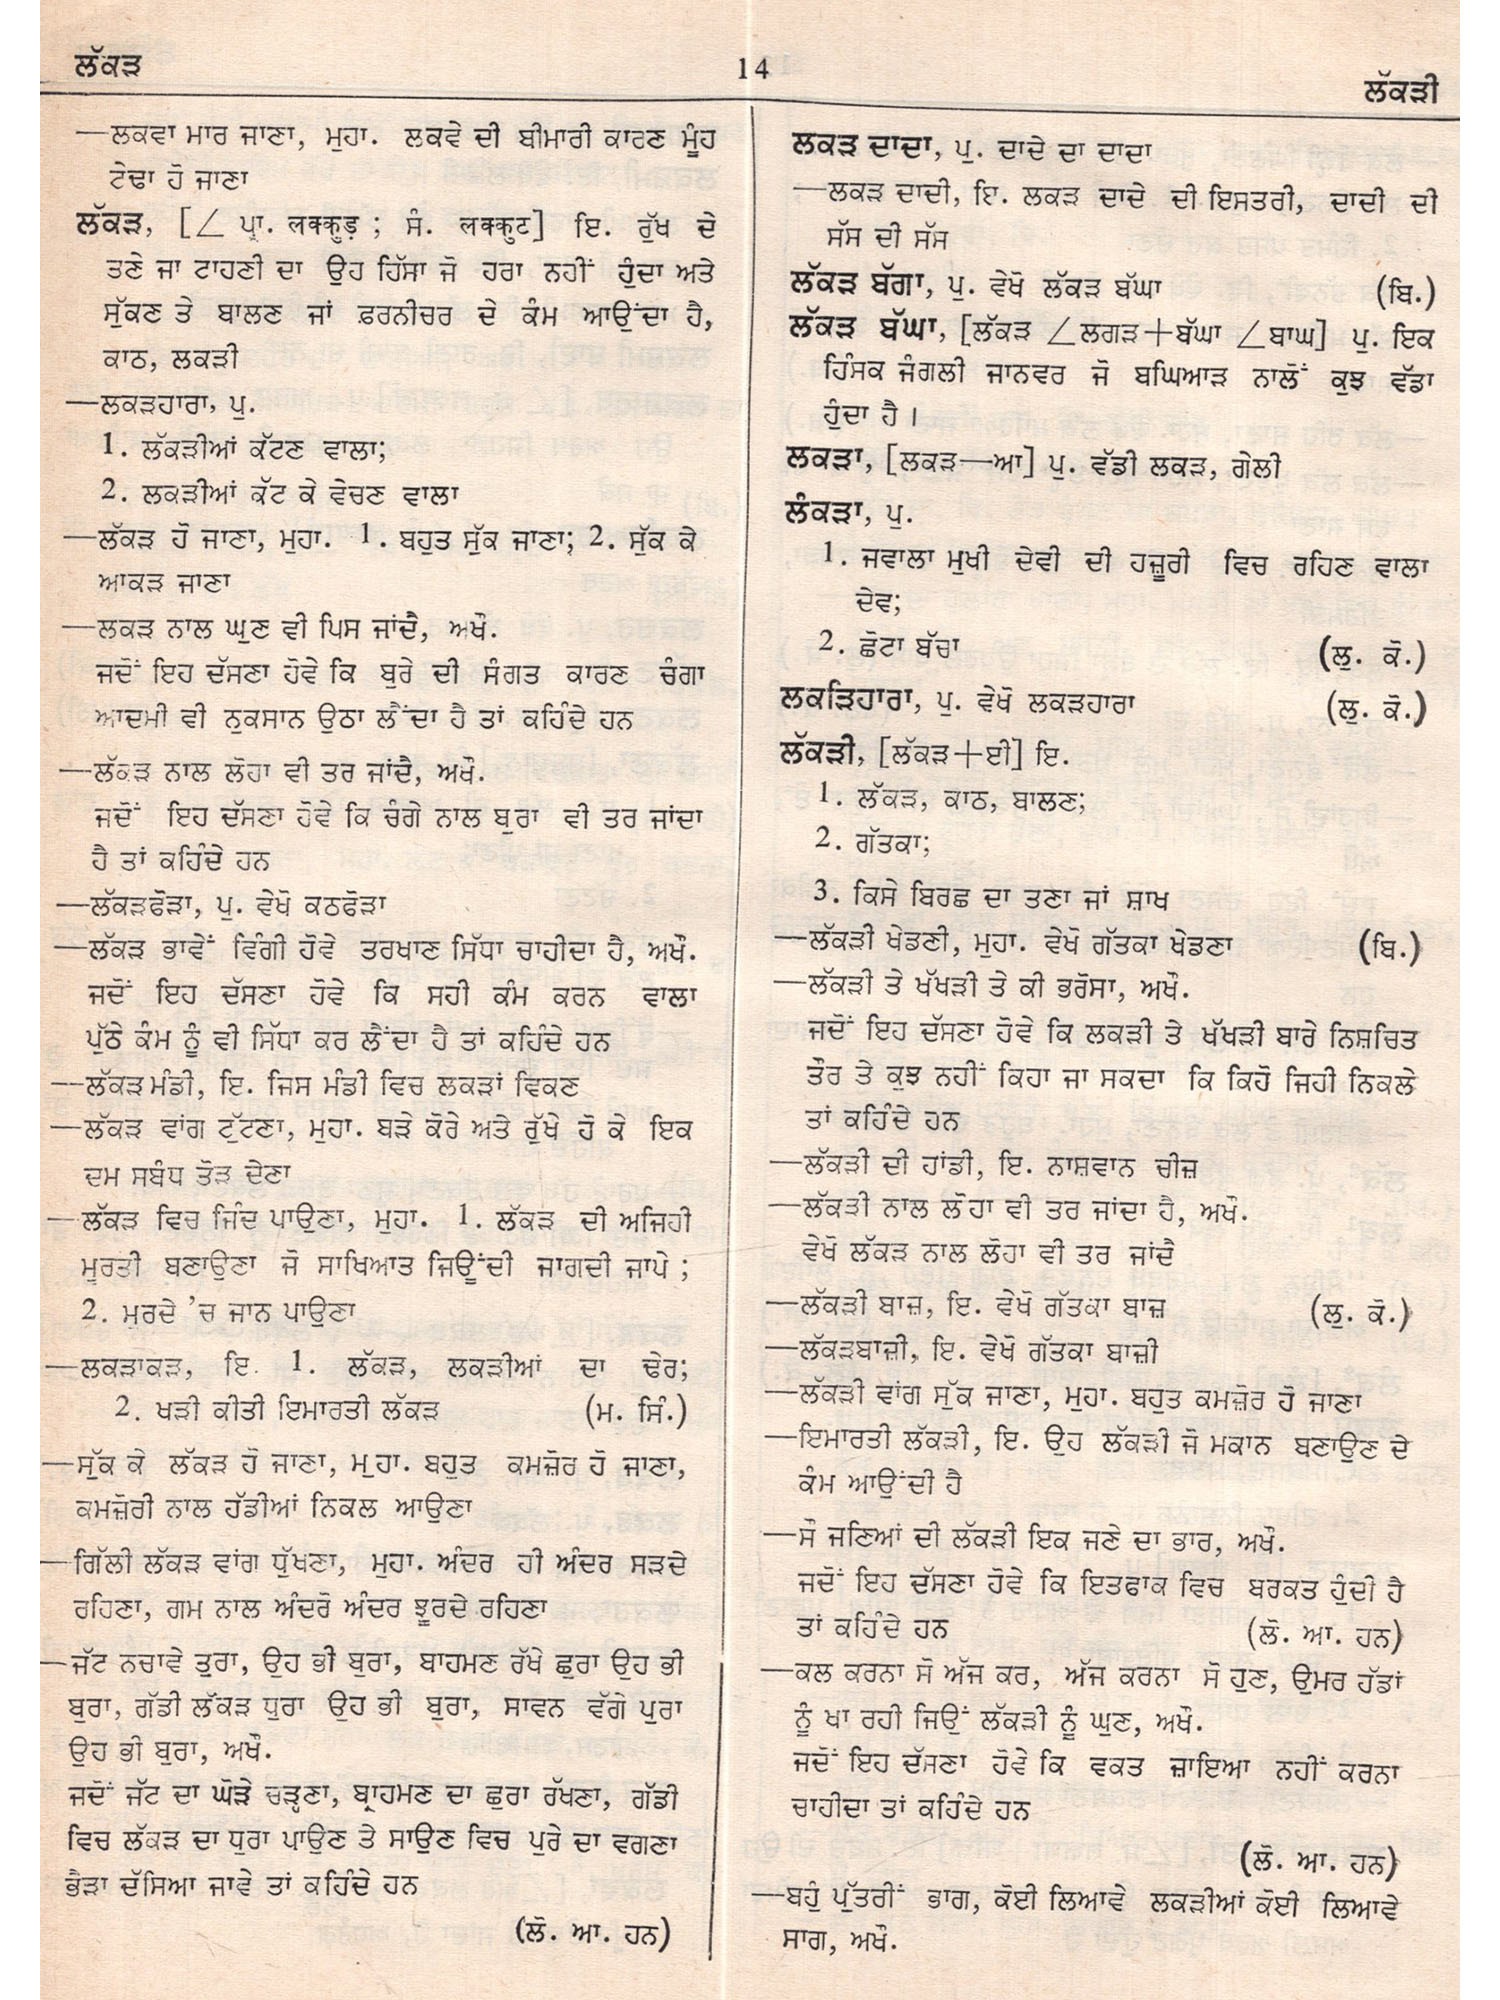 ਲੱਕੜ
14
ਲੱਕੜੀ
—ਲਕਵਾ ਮਾਰ ਜਾਣਾ, ਮੁਹਾ. ਲਕਵੇ ਦੀ ਬੀਮਾਰੀ ਕਾਰਣ ਮੂੰਹ
ਟੇਢਾ ਹੋ ਜਾਣਾ
ਲੱਕੜ, [∠ ਪ੍ਰਾ. लक्कुड़ ; ਸੰ. लक्कुट] ਇ. ਰੁੱਖ ਦੇ
ਤਣੇ ਜਾ ਟਾਹਣੀ ਦਾ ਉਹ ਹਿੱਸਾ ਜੋ ਹਰਾ ਨਹੀਂ ਹੁੰਦਾ ਅਤੇ
ਸੁੱਕਣ ਤੇ ਬਾਲਣ ਜਾਂ ਫ਼ਰਨੀਚਰ ਦੇ ਕੰਮ ਆਉਂਦਾ ਹੈ,
ਕਾਠ, ਲਕੜੀ
—ਲਕੜਹਾਰਾ, ਪੁ.
1. ਲੱਕੜੀਆਂ ਕੱਟਣ ਵਾਲਾ;
2. ਲਕੜੀਆਂ ਕੱਟ ਕੇ ਵੇਚਣ ਵਾਲਾ
—ਲੱਕੜ ਹੋ ਜਾਣਾ, ਮੁਹਾ. 1. ਬਹੁਤ ਸੁੱਕ ਜਾਣਾ; 2. ਸੁੱਕ ਕੇ
ਆਕੜ ਜਾਣਾ
—ਲਕੜ ਨਾਲ ਘੁਣ ਵੀ ਪਿਸ ਜਾਂਦੈ, ਅਖੌ.
ਜਦੋਂ ਇਹ ਦੱਸਣਾ ਹੋਵੇ ਕਿ ਬੁਰੇ ਦੀ ਸੰਗਤ ਕਾਰਣ ਚੰਗਾ
ਆਦਮੀ ਵੀ ਨੁਕਸਾਨ ਉਠਾ ਲੈਂਦਾ ਹੈ ਤਾਂ ਕਹਿੰਦੇ ਹਨ
—ਲੱਕੜ ਨਾਲ ਲੋਹਾ ਵੀ ਤਰ ਜਾਂਦੈ, ਅਖੌ.
ਜਦੋਂ ਇਹ ਦੱਸਣਾ ਹੋਵੇ ਕਿ ਚੰਗੇ ਨਾਲ ਬੁਰਾ ਵੀ ਤਰ ਜਾਂਦਾ
ਹੈ ਤਾਂ ਕਹਿੰਦੇ ਹਨ
—ਲੱਕੜਫੋੜਾ, ਪੁ. ਵੇਖੋ ਕਠਫੋੜਾ
—ਲੱਕੜ ਭਾਵੇਂ ਵਿੰਗੀ ਹੋਵੇ ਤਰਖਾਣ ਸਿੱਧਾ ਚਾਹੀਦਾ ਹੈ, ਅਖੌ.
ਜਦੋਂ ਇਹ ਦੱਸਣਾ ਹੋਵੇ ਕਿ ਸਹੀ ਕੰਮ ਕਰਨ ਵਾਲਾ
ਪੁੱਠੇ ਕੰਮ ਨੂੰ ਵੀ ਸਿੱਧਾ ਕਰ ਲੈਂਦਾ ਹੈ ਤਾਂ ਕਹਿੰਦੇ ਹਨ
—ਲੱਕੜਮੰਡੀ, ਇ. ਜਿਸ ਮੰਡੀ ਵਿਚ ਲਕੜਾਂ ਵਿਕਣ
—ਲੱਕੜ ਵਾਂਗ ਟੁੱਟਣਾ, ਮੁਹਾ. ਬੜੇ ਕੋਰੇ ਅਤੇ ਰੁੱਖੇ ਹੋ ਕੇ ਇਕ
ਦਮ ਸਬੰਧ ਤੋੜ ਦੇਣਾ
—ਲੱਕੜ ਵਿਚ ਜਿੰਦ ਪਾਉਣਾ, ਮੁਹਾ. 1. ਲੱਕੜ ਦੀ ਅਜਿਹੀ
ਮੂਰਤੀ ਬਣਾਉਣਾ ਜੋ ਸਾਖਿਆਤ ਜਿਊਂਦੀ ਜਾਗਦੀ ਜਾਪੇ ;
2. ਮੁਰਦੇ ’ਚ ਜਾਨ ਪਾਉਣਾ
—ਲਕੜਾਕੜ, ਇ. 1. ਲੱਕੜ, ਲਕੜੀਆਂ ਦਾ ਢੇਰ;
2. ਖੜੀ ਕੀਤੀ ਇਮਾਰਤੀ ਲੱਕੜ (ਮ. ਸਿੰ.)
—ਸੁੱਕ ਕੇ ਲੱਕੜ ਹੋ ਜਾਣਾ, ਮੁਹਾ. ਬਹੁਤ ਕਮਜ਼ੋਰ ਹੋ ਜਾਣਾ,
ਕਮਜ਼ੋਰੀ ਨਾਲ ਹੱਡੀਆਂ ਨਿਕਲ ਆਉਣਾ
—ਗਿੱਲੀ ਲੱਕੜ ਵਾਂਗ ਧੁੱਖਣਾ, ਮੁਹਾ. ਅੰਦਰ ਹੀ ਅੰਦਰ ਸੜਦੇ
ਰਹਿਣਾ, ਗਮ ਨਾਲ ਅੰਦਰੋ ਅੰਦਰ ਝੂਰਦੇ ਰਹਿਣਾ
—ਜੱਟ ਨਚਾਵੇ ਤੁਰਾ, ਉਹ ਭੀ ਬੁਰਾ, ਬਾਹਮਣ ਰੱਖੇ ਛੁਰਾ ਉਹ ਭੀ
ਬੁਰਾ, ਗੱਡੀ ਲੱਕੜ ਧੁਰਾ ਉਹ ਭੀ ਬੁਰਾ, ਸਾਵਨ ਵੱਗੇ ਪੁਰਾ
ਉਹ ਭੀ ਬੁਰਾ, ਅਖੌ.
ਜਦੋਂ ਜੱਟ ਦਾ ਘੋੜੇ ਚੜ੍ਹਣਾ, ਬ੍ਰਾਹਮਣ ਦਾ ਛੁਰਾ ਰੱਖਣਾ, ਗੱਡੀ
ਵਿਚ ਲੱਕੜ ਦਾ ਧੁਰਾ ਪਾਉਣ ਤੇ ਸਾਉਣ ਵਿਚ ਪੁਰੇ ਦਾ ਵਗਣਾ
ਭੈੜਾ ਦੱਸਿਆ ਜਾਵੇ ਤਾਂ ਕਹਿੰਦੇ ਹਨ
(ਲੋ. ਆ. ਹਨ)
ਲਕੜ ਦਾਦਾ, ਪੁ. ਦਾਦੇ ਦਾ ਦਾਦਾ
—ਲਕੜ ਦਾਦੀ, ਇ. ਲਕੜ ਦਾਦੇ ਦੀ ਇਸਤਰੀ, ਦਾਦੀ ਦੀ
ਸੱਸ ਦੀ ਸੱਸ
ਲੱਕੜ ਬੱਗਾ, ਪੁ. ਵੇਖੋ ਲੱਕੜ ਬੱਘਾ (ਬਿ.)
ਲੱਕੜ ਬੱਘਾ, [ਲੱਕੜ ∠ਲਗੜ+ਬੱਘਾ ∠ਬਾਘ] ਪੁ. ਇਕ
ਹਿੰਸਕ ਜੰਗਲੀ ਜਾਨਵਰ ਜੋ ਬਘਿਆੜ ਨਾਲੋਂ ਕੁਝ ਵੱਡਾ
ਹੁੰਦਾ ਹੈ।
ਲਕੜਾ, [ਲਕੜ—ਆ] ਪੁ. ਵੱਡੀ ਲਕੜ, ਗੇਲੀ
ਲੰਕੜਾ, ਪੁ.
1. ਜਵਾਲਾ ਮੁਖੀ ਦੇਵੀ ਦੀ ਹਜ਼ੂਰੀ ਵਿਚ ਰਹਿਣ ਵਾਲਾ
ਦੇਵ;
2. ਛੋਟਾ ਬੱਚਾ (ਲੁ. ਕੋ.)
ਲਕੜਿਹਾਰਾ, ਪੁ. ਵੇਖੋ ਲਕੜਹਾਰਾ (ਲੁ. ਕੋ.)
ਲੱਕੜੀ, [ਲੱਕੜ+ਈ] ਇ.
1. ਲੱਕੜ, ਕਾਠ, ਬਾਲਣ;
2. ਗੱਤਕਾ;
3. ਕਿਸੇ ਬਿਰਛ ਦਾ ਤਣਾ ਜਾਂ ਸ਼ਾਖ
—ਲੱਕੜੀ ਖੇਡਣੀ, ਮੁਹਾ. ਵੇਖੋ ਗੱਤਕਾ ਖੇਡਣਾ (ਬਿ.)
—ਲੱਕੜੀ ਤੇ ਖੱਖੜੀ ਤੇ ਕੀ ਭਰੋਸਾ, ਅਖੌ.
ਜਦੋਂ ਇਹ ਦੱਸਣਾ ਹੋਵੇ ਕਿ ਲਕੜੀ ਤੇ ਖੱਖੜੀ ਬਾਰੇ ਨਿਸ਼ਚਿਤ
ਤੌਰ ਤੇ ਕੁਝ ਨਹੀਂ ਕਿਹਾ ਜਾ ਸਕਦਾ ਕਿ ਕਿਹੋ ਜਿਹੀ ਨਿਕਲੇ
ਤਾਂ ਕਹਿੰਦੇ ਹਨ
—ਲੱਕੜੀ ਦੀ ਹਾਂਡੀ, ਇ. ਨਾਸ਼ਵਾਨ ਚੀਜ਼
—ਲੱਕੜੀ ਨਾਲ ਲੋਹਾ ਵੀ ਤਰ ਜਾਂਦਾ ਹੈ, ਅਖੌ.
ਵੇਖੋ ਲੱਕੜ ਨਾਲ ਲੋਹਾ ਵੀ ਤਰ ਜਾਂਦੈ
—ਲੱਕੜੀ ਬਾਜ਼, ਇ. ਵੇਖੋ ਗੱਤਕਾ ਬਾਜ਼ (ਲੁ. ਕੋ.)
—ਲੱਕੜਬਾਜ਼ੀ, ਇ. ਵੇਖੋ ਗੱਤਕਾ ਬਾਜ਼ੀ
—ਲੱਕੜੀ ਵਾਂਗ ਸੁੱਕ ਜਾਣਾ, ਮੁਹਾ. ਬਹੁਤ ਕਮਜ਼ੋਰ ਹੋ ਜਾਣਾ
—ਇਮਾਰਤੀ ਲੱਕੜੀ, ਇ. ਉਹ ਲੱਕੜੀ ਜੋ ਮਕਾਨ ਬਣਾਉਣ ਦੇ
ਕੰਮ ਆਉਂਦੀ ਹੈ
—ਸੌ ਜਣਿਆਂ ਦੀ ਲੱਕੜੀ ਇਕ ਜਣੇ ਦਾ ਭਾਰ, ਅਖੌ.
ਜਦੋਂ ਇਹ ਦੱਸਣਾ ਹੋਵੇ ਕਿ ਇਤਫਾਕ ਵਿਚ ਬਰਕਤ ਹੁੰਦੀ ਹੈ
ਤਾਂ ਕਹਿੰਦੇ ਹਨ (ਲੋ. ਆ. ਹਨ)
—ਕਲ ਕਰਨਾ ਸੋ ਅੱਜ ਕਰ, ਅੱਜ ਕਰਨਾ ਸੋ ਹੁਣ, ਉਮਰ ਹੱਡਾਂ
ਨੂੰ ਖਾ ਰਹੀ ਜਿਉਂ ਲੱਕੜੀ ਨੂੰ ਘੁਣ, ਅਖੌ.
ਜਦੋਂ ਇਹ ਦੱਸਣਾ ਹੋਵੇ ਕਿ ਵਕਤ ਜ਼ਾਇਆ ਨਹੀਂ ਕਰਨਾ
ਚਾਹੀਦਾ ਤਾਂ ਕਹਿੰਦੇ ਹਨ
(ਲੋ. ਆ. ਹਨ)
—ਬਹੁੰ ਪੁੱਤਰੀਂ ਭਾਗ, ਕੋਈ ਲਿਆਵੇ ਲਕੜੀਆਂ ਕੋਈ ਲਿਆਵੇ
ਸਾਗ, ਅਖੌ.